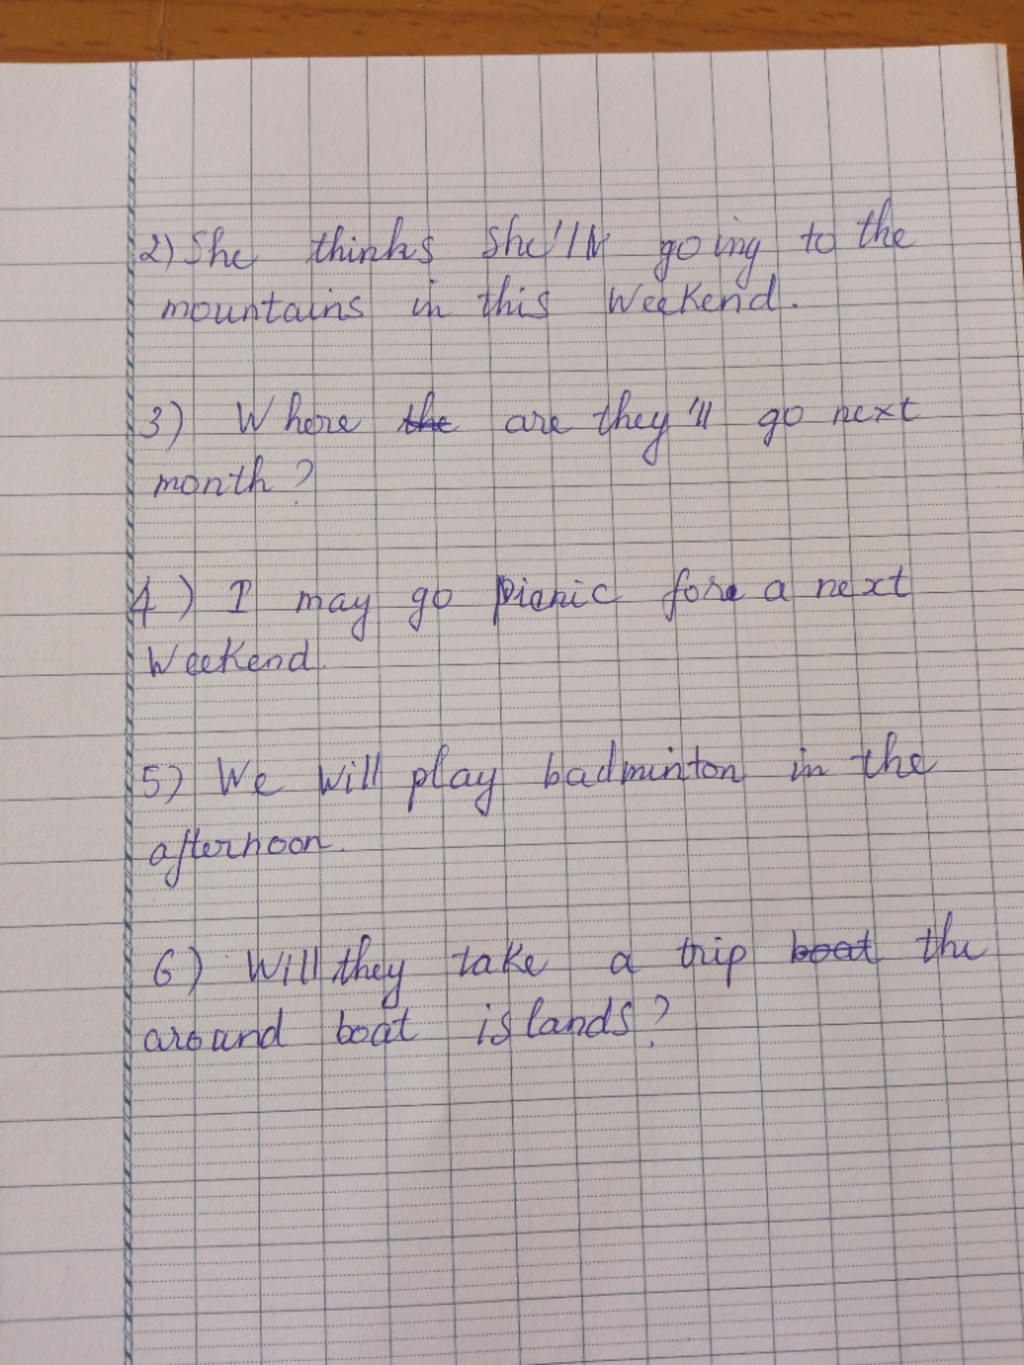 2) She thinks she'll going to the
mountains in this Weekend.
3) Where the are they'll go next
month?
4) I may go picnic for a next
Weekend.
5) We will play badminton in the
afternoon.
6) Will they take a trip boat the
around boat islands?